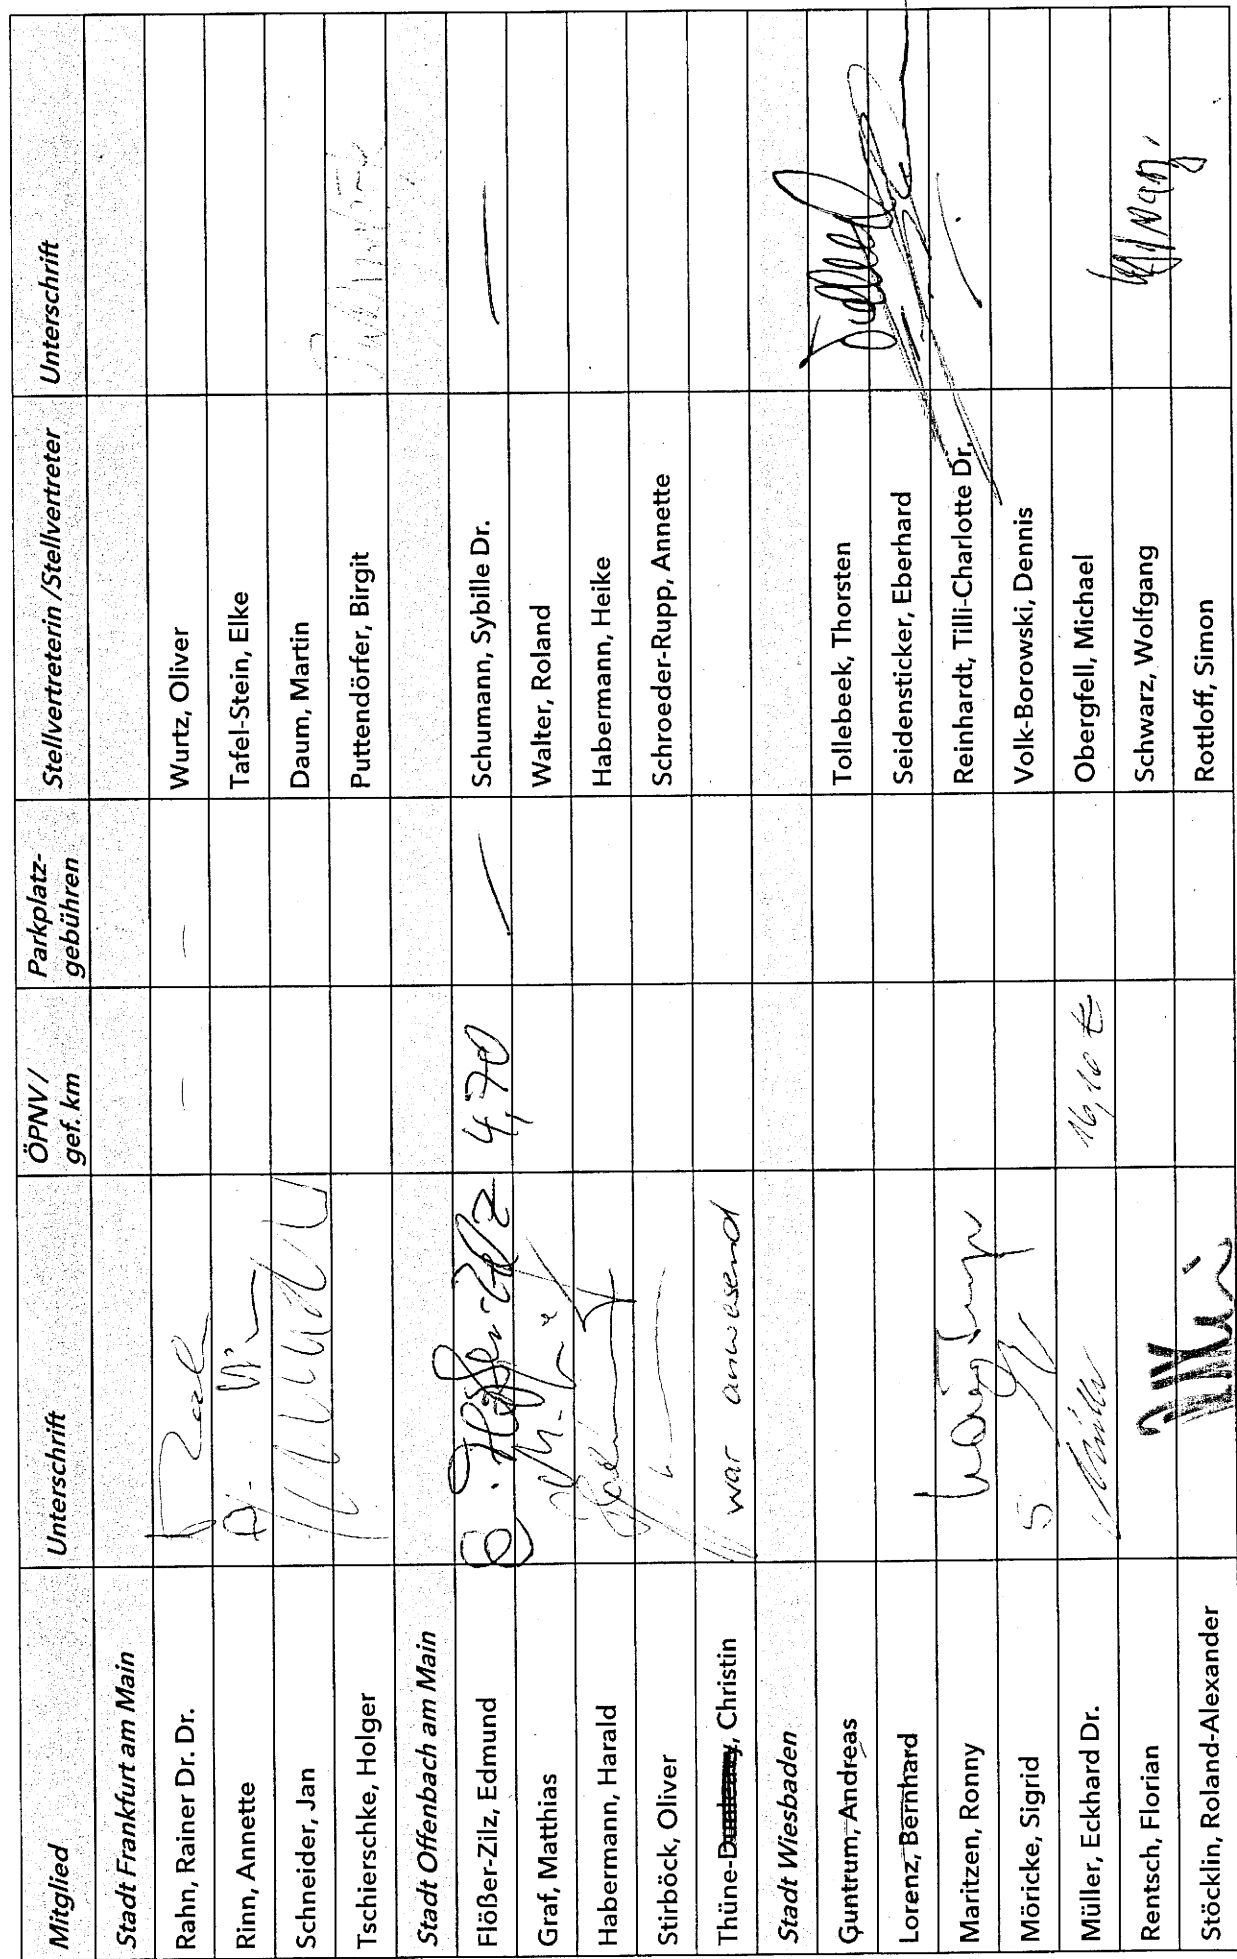 Mitglied Unterschrift ÖPNV / gef. km Parkplatz-gebühren Stellvertreterin /Stellvertreter Unterschrift
Stadt Frankfurt am Main
Rahn, Rainer Dr. Dr. – – Wurtz, Oliver
Rinn, Annette Tafel-Stein, Elke
Schneider, Jan Daum, Martin
Tschierschke, Holger Puttendörfer, Birgit
Stadt Offenbach am Main
Flößer-Zilz, Edmund 4,70 Schumann, Sybille Dr.
Graf, Matthias Walter, Roland
Habermann, Harald Habermann, Heike
Stirböck, Oliver Schroeder-Rupp, Annette
Thüne- , Christin war anwesend
Stadt Wiesbaden
Guntrum, Andreas Tollebeek, Thorsten
Lorenz, Bernhard Seidensticker, Eberhard
Maritzen, Ronny Reinhardt, Tilli-Charlotte Dr.
Möricke, Sigrid Volk-Borowski, Dennis
Müller, Eckhard Dr. Müller 16,10 € Obergfell, Michael
Rentsch, Florian Schwarz, Wolfgang
Stöcklin, Roland-Alexander Rottloff, Simon